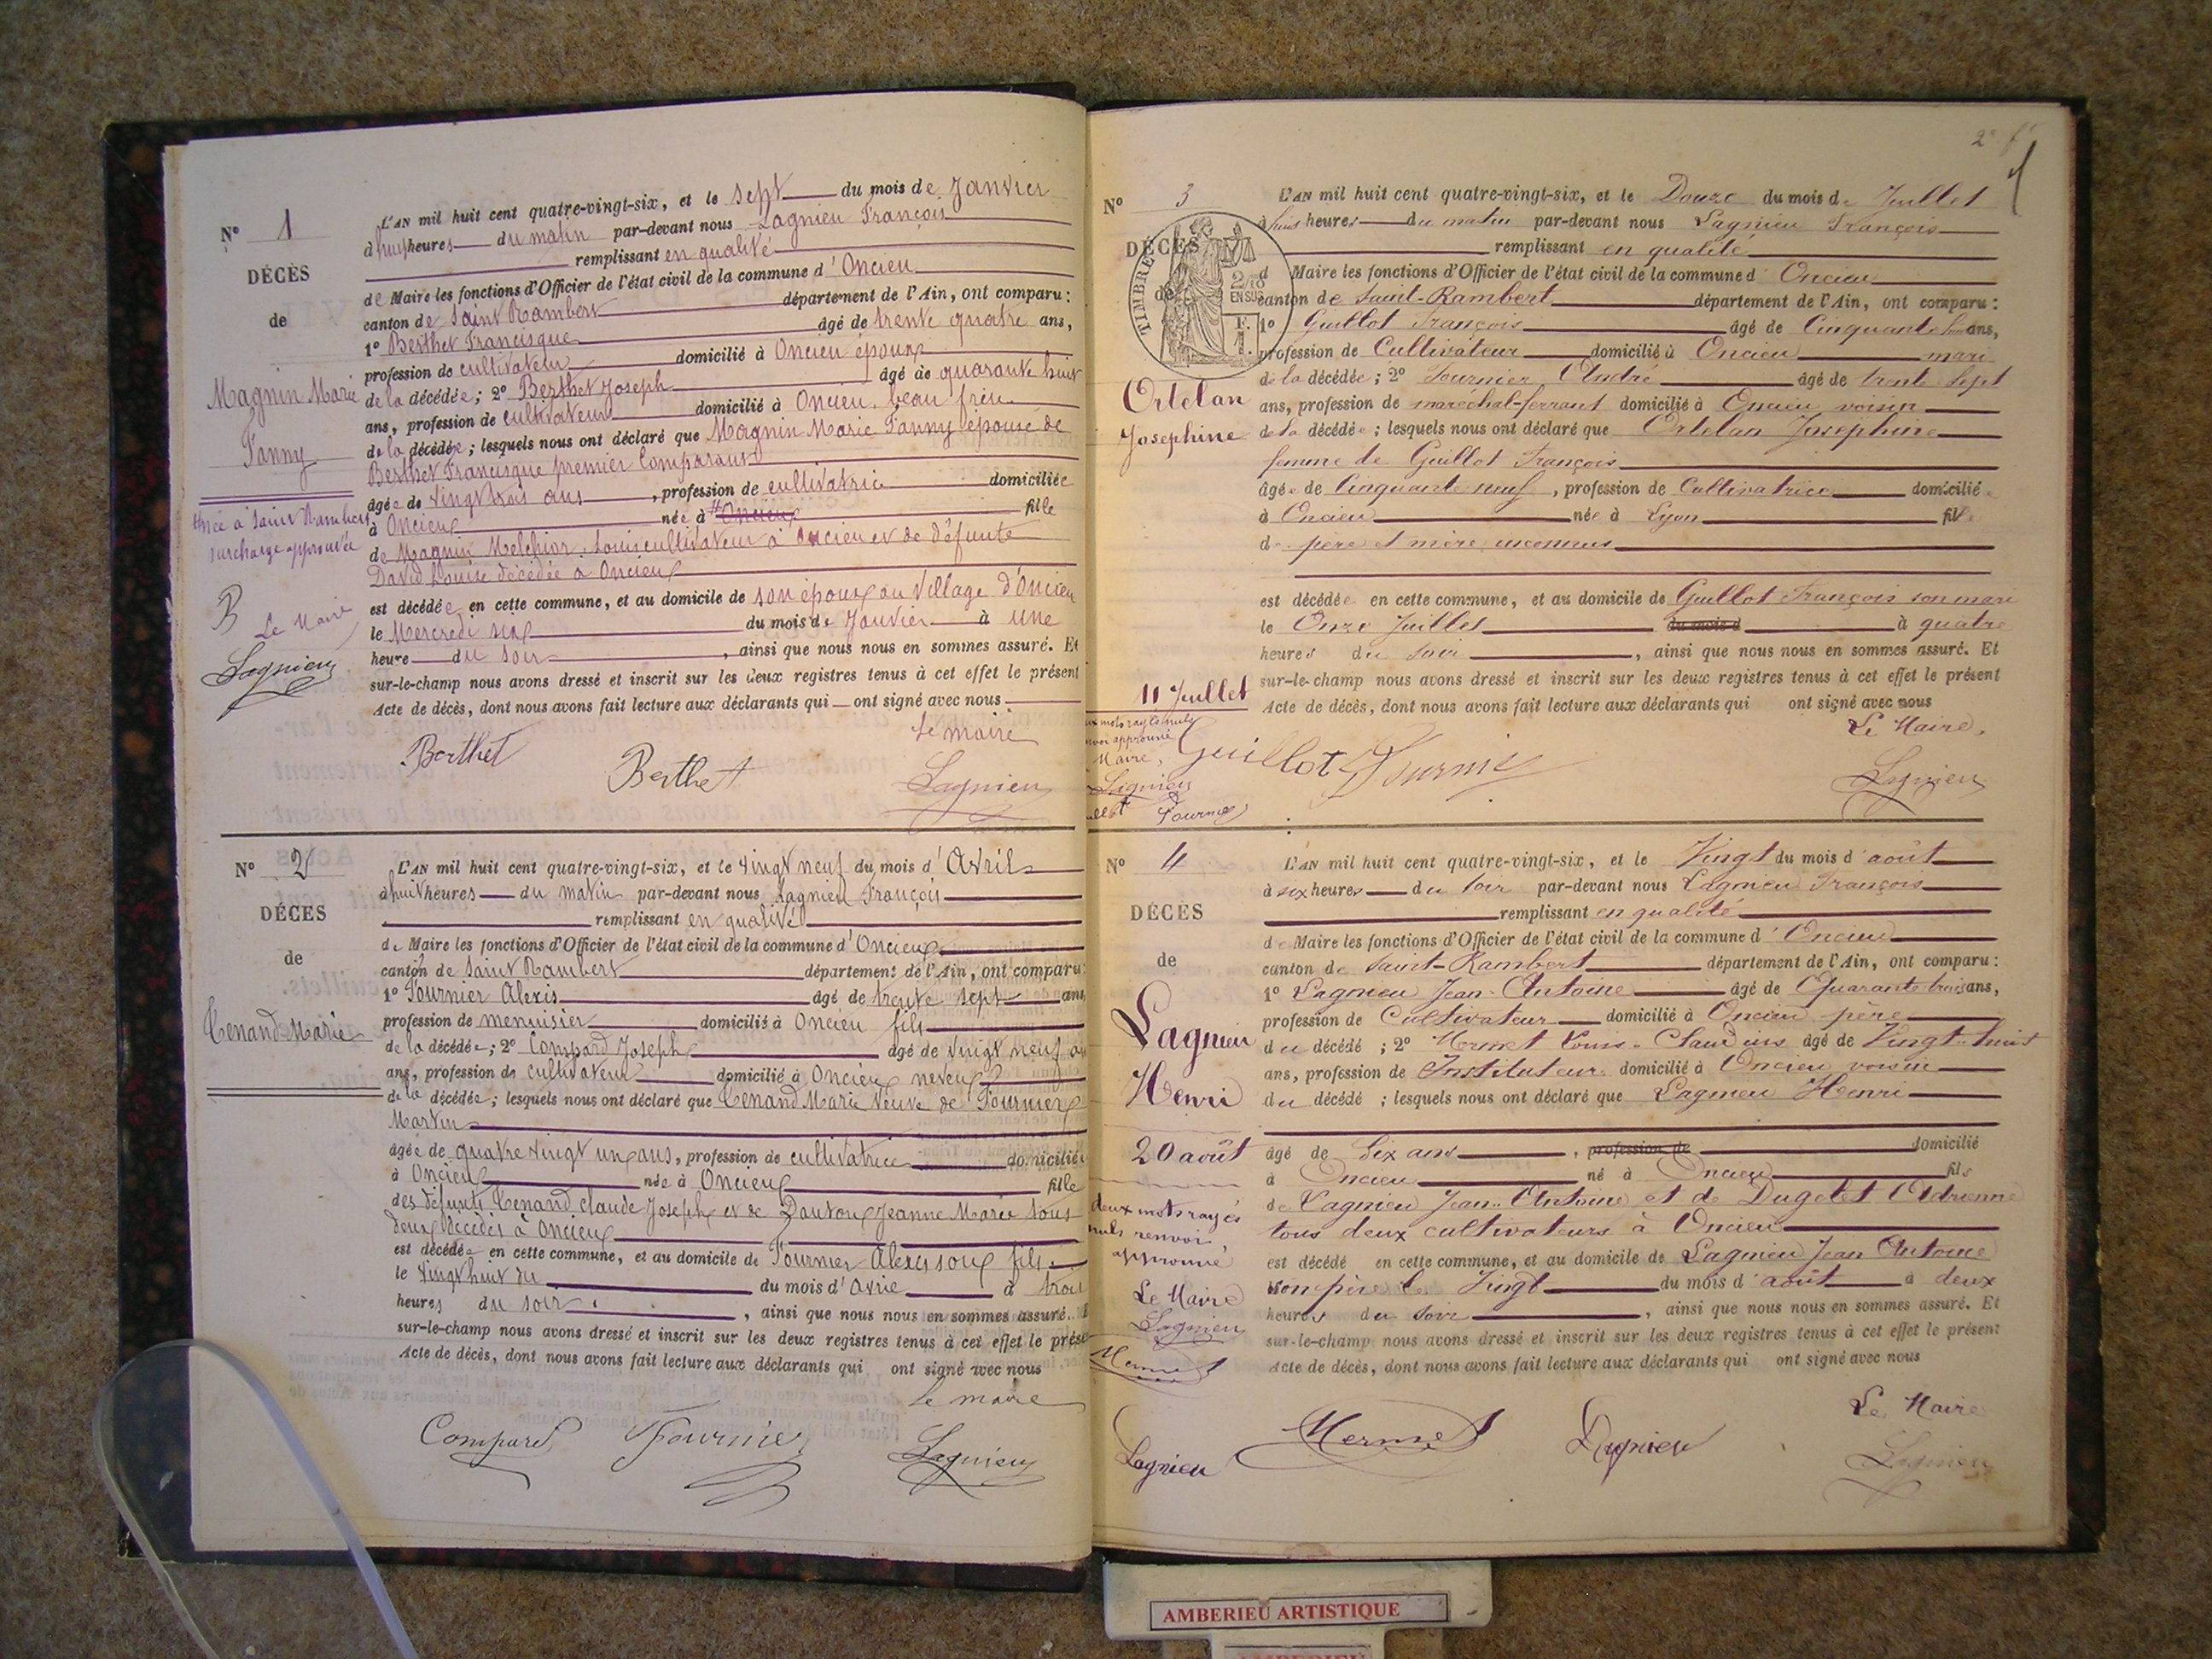 N° 1
DÉCÈS
de
Magnin Marie
Fanny
née à Saint Rambert
surcharge approuvée
Le Maire
Lagnieu
L'AN mil huit cent quatre-vingt-six, et le sept du mois de Janvier
à huit heures du matin par-devant nous Lagnieu François
remplissant en qualité
de Maire les fonctions d'Officier de l'état civil de la commune d'Oncieu
canton de Saint Rambert département de l'Ain, ont comparu :
1° Berthet Francisque âgé de trente quatre ans,
profession de cultivateur domicilié à Oncieu époux
de la décédée ; 2° Berthet Joseph âgé de quarante huit
ans, profession de cultivateur domicilié à Oncieu, beau frère
de la décédée ; lesquels nous ont déclaré que Magnin Marie Fanny épouse de
Berthet Francisque premier Comparant
âgée de vingt trois ans, profession de cultivatrice domiciliée
à Oncieu née à Oncieu fille
de Magnin Melchior, Louis cultivateur à Oncieu et de défunte
David Louise décédée à Oncieu
est décédée en cette commune, et au domicile de son époux au village d'Oncieu
le Mercredi six du mois de Janvier à une
heure du soir, ainsi que nous nous en sommes assuré. Et
sur-le-champ nous avons dressé et inscrit sur les deux registres tenus à cet effet le présent
Acte de décès, dont nous avons fait lecture aux déclarants qui ont signé avec nous.
Le maire
Berthet Berthet Lagnieu
N° 2
DÉCÈS
de
Tenand Marie
L'AN mil huit cent quatre-vingt-six, et le vingt neuf du mois d'Avril
à huit heures du matin par-devant nous Lagnieu François
remplissant en qualité
de Maire les fonctions d'Officier de l'état civil de la commune d'Oncieu
canton de Saint Rambert département de l'Ain, ont comparu :
1° Fournier Alexis âgé de trente sept ans
profession de menuisier domicilié à Oncieu fils
de la décédée ; 2° Compard Joseph âgé de vingt neuf
ans, profession de cultivateur domicilié à Oncieu neveu
de la décédée ; lesquels nous ont déclaré que Tenand Marie Veuve de Fournier
Martin
âgée de quatre vingt un ans, profession de cultivatrice domiciliée
à Oncieu née à Oncieu fille
des défunts Tenand Claude Joseph et de Jeanne Marie tous
deux décédés à Oncieu
est décédée en cette commune, et au domicile de Fournier Alexis son fils
le vingt huit du du mois d'avril à trois
heures du soir, ainsi que nous nous en sommes assuré.
sur-le-champ nous avons dressé et inscrit sur les deux registres tenus à cet effet le prése
Acte de décès, dont nous avons fait lecture aux déclarants qui ont signé avec nous
Le maire
Compard Fournier Lagnieu
2e
N° 3
DÉCÈS
de
TIMBRE
2/10
EN SUS
F.
1.
Ortelan
Josephine
11 Juillet
mots rayés nuls
approuvé
Maire,
Lagnieu
Fournier
L'AN mil huit cent quatre-vingt-six, et le Douze du mois de Juillet
à huit heures du matin par-devant nous Lagnieu François
remplissant en qualité
de Maire les fonctions d'Officier de l'état civil de la commune d'Oncieu
canton de Saint-Rambert département de l'Ain, ont comparu :
1° Guillot François âgé de Cinquante ans,
profession de Cultivateur domicilié à Oncieu mari
de la décédée ; 2° Fournier André âgé de trente sept
ans, profession de maréchal-ferrant domicilié à Oncieu voisin
de la décédée ; lesquels nous ont déclaré que Ortelan Josephine
femme de Guillot François
âgée de Cinquante neuf, profession de Cultivatrice domiciliée
à Oncieu née à Lyon fille
de père et mère inconnus
est décédée en cette commune, et au domicile de Guillot François son mari
le Onze Juillet du mois d à quatre
heures du soir, ainsi que nous nous en sommes assuré. Et
sur-le-champ nous avons dressé et inscrit sur les deux registres tenus à cet effet le présent
Acte de décès, dont nous avons fait lecture aux déclarants qui ont signé avec nous
Le Maire,
Guillot Fournier Lagnieu
N° 4
DÉCÈS
de
Lagnieu
Henri
20 août
deux mots rayés
nuls renvoi
approuvé
Le Maire
Lagnieu
Mermet
Lagnieu
L'AN mil huit cent quatre-vingt-six, et le Vingt du mois d'août
à six heures du soir par-devant nous Lagnieu François
remplissant en qualité
de Maire les fonctions d'Officier de l'état civil de la commune d'Oncieu
canton de Saint-Rambert département de l'Ain, ont comparu :
1° Lagnieu Jean-Antoine âgé de Quarante trois ans,
profession de Cultivateur domicilié à Oncieu père
du décédé ; 2° Mermet Louis-Claudius âgé de Vingt-huit
ans, profession de Instituteur domicilié à Oncieu voisin
du décédé ; lesquels nous ont déclaré que Lagnieu Henri
âgé de Six ans, profession de domicilié
à Oncieu né à Oncieu fils
de Lagnieu Jean-Antoine et de Dugelet Adrienne
tous deux cultivateurs à Oncieu
est décédé en cette commune, et au domicile de Lagnieu Jean Antoine
son père le Vingt du mois d'août à deux
heures du soir, ainsi que nous nous en sommes assuré. Et
sur-le-champ nous avons dressé et inscrit sur les deux registres tenus à cet effet le présent
Acte de décès, dont nous avons fait lecture aux déclarants qui ont signé avec nous
Le Maire
Mermet Lagnieu Lagnieu
AMBERIEU ARTISTIQUE
AMBERIEU